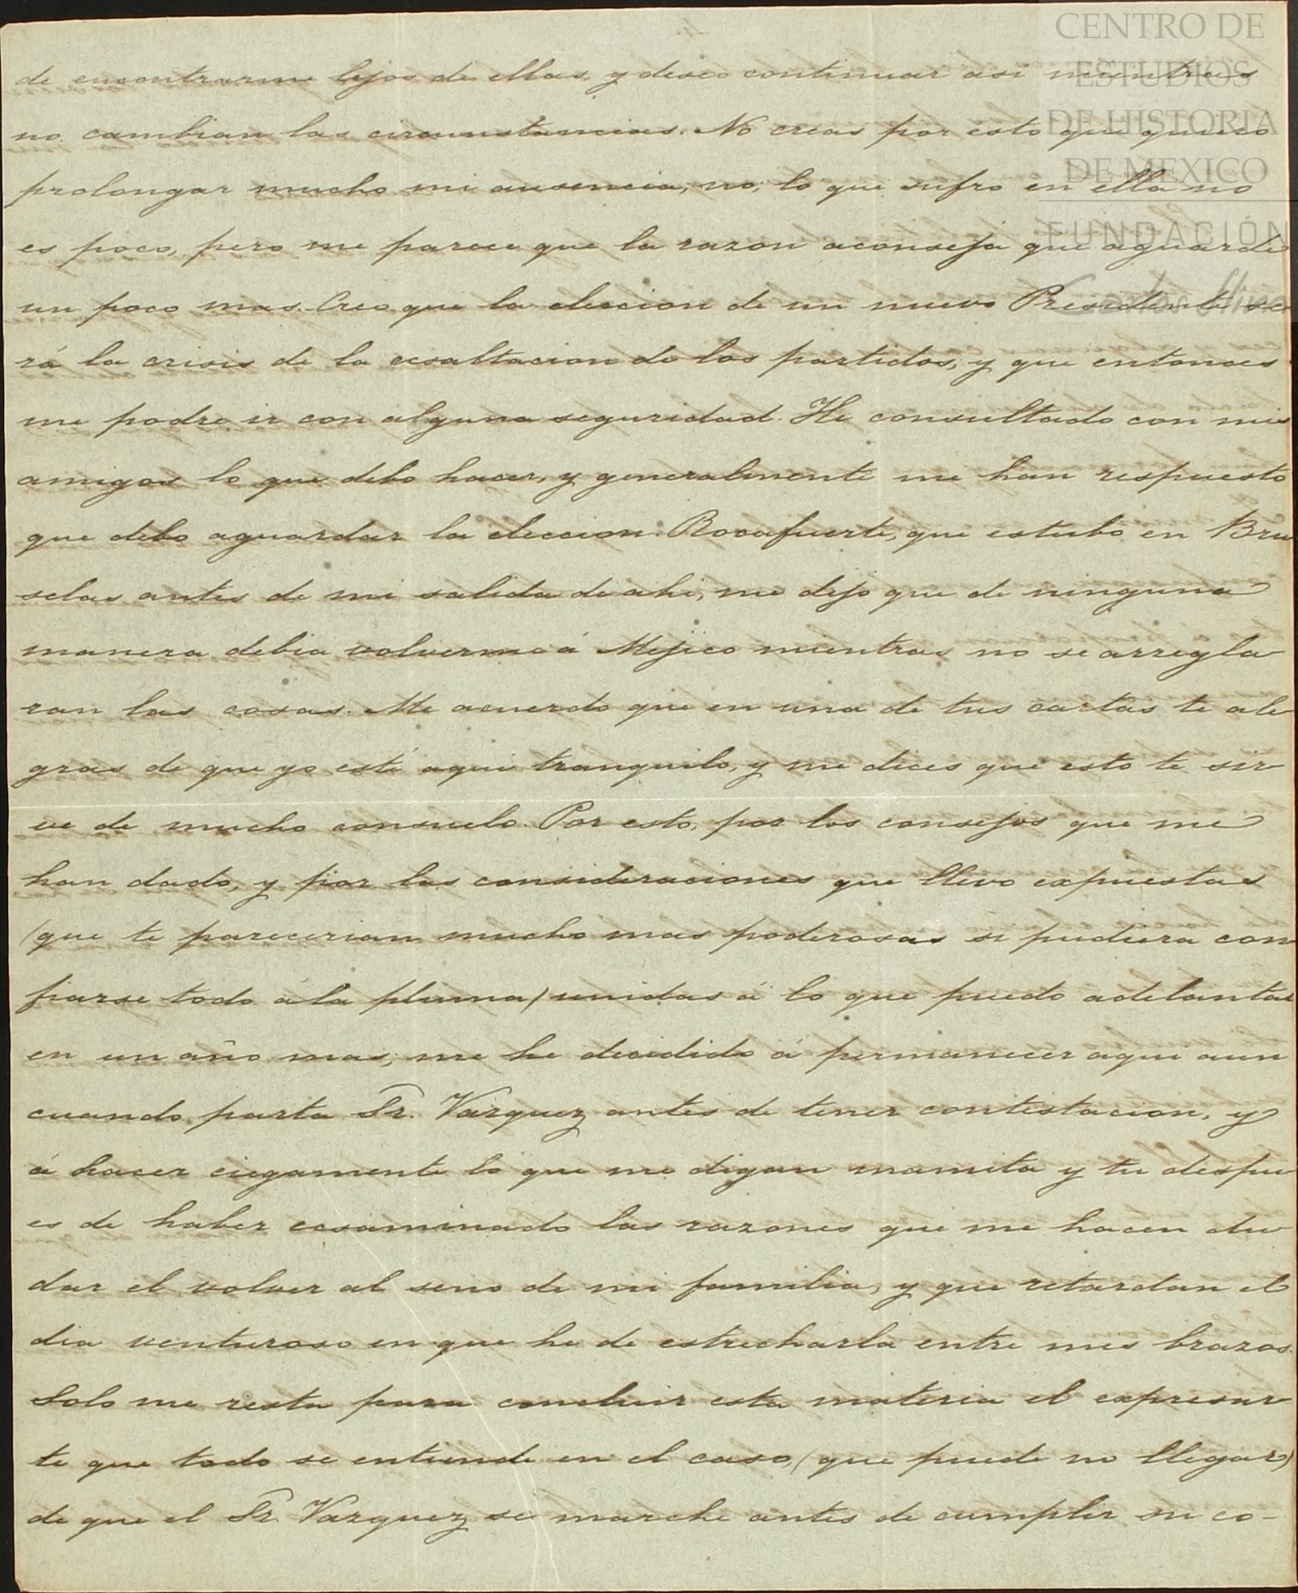 CENTRO DE
ESTUDIOS
DE HISTORIA
DE MEXICO
FUNDACIÓN
de encontrarme lejos de ellas, y deseo continuar asi mientras
no cambian las circunstancias. No creas por esto que quiero
prolongar mucho mi ausencia, no; lo que sufro en ella no
es poco, pero me parece que la razon aconseja que aguarde
un poco mas. Creo que la eleccion de un nuevo Presidente se-
rá la crisis de la ecsaltacion de los partidos, y que entonces
me podre ir con alguna seguridad. He consultado con mis
amigos lo que debo hacer, y generalmente me han respuesto
que debo aguardar la eleccion. Rocafuerte, que estubo en Bru
selas antes de mi salida de ahi, me dijo que de ninguna
manera debia volverme á Mejico mientras no se arregla
ran las cosas. Me acuerdo que en una de tus cartas te ale
gras de que yo esté aqui tranquilo, y me dices que esto te sir
ve de mucho consuelo. Por esto, por los consejos que me
han dado, y por las consideraciones que llevo expuestas
(que te parecerian mucho mas poderosas si pudiera con
fiarse todo á la pluma) unidas á lo que puedo adelantar
en un año mas, me he decidido á permanecer aqui aun
cuando parta Sr. Vazquez antes de tener contestacion, y
á hacer ciegamente lo que me digan mamita y tu despu
es de haber ecsaminado las razones que me hacen du
dar el volver al seno de mi familia, y que retardan el
dia venturoso en que he de estrecharla entre mis brazos.
Solo me resta para concluir esta materia el expresar
te que todo se entiende en el caso, (que puede no llegar)
de que el Sr. Vazquez se marche antes de cumplir su co-